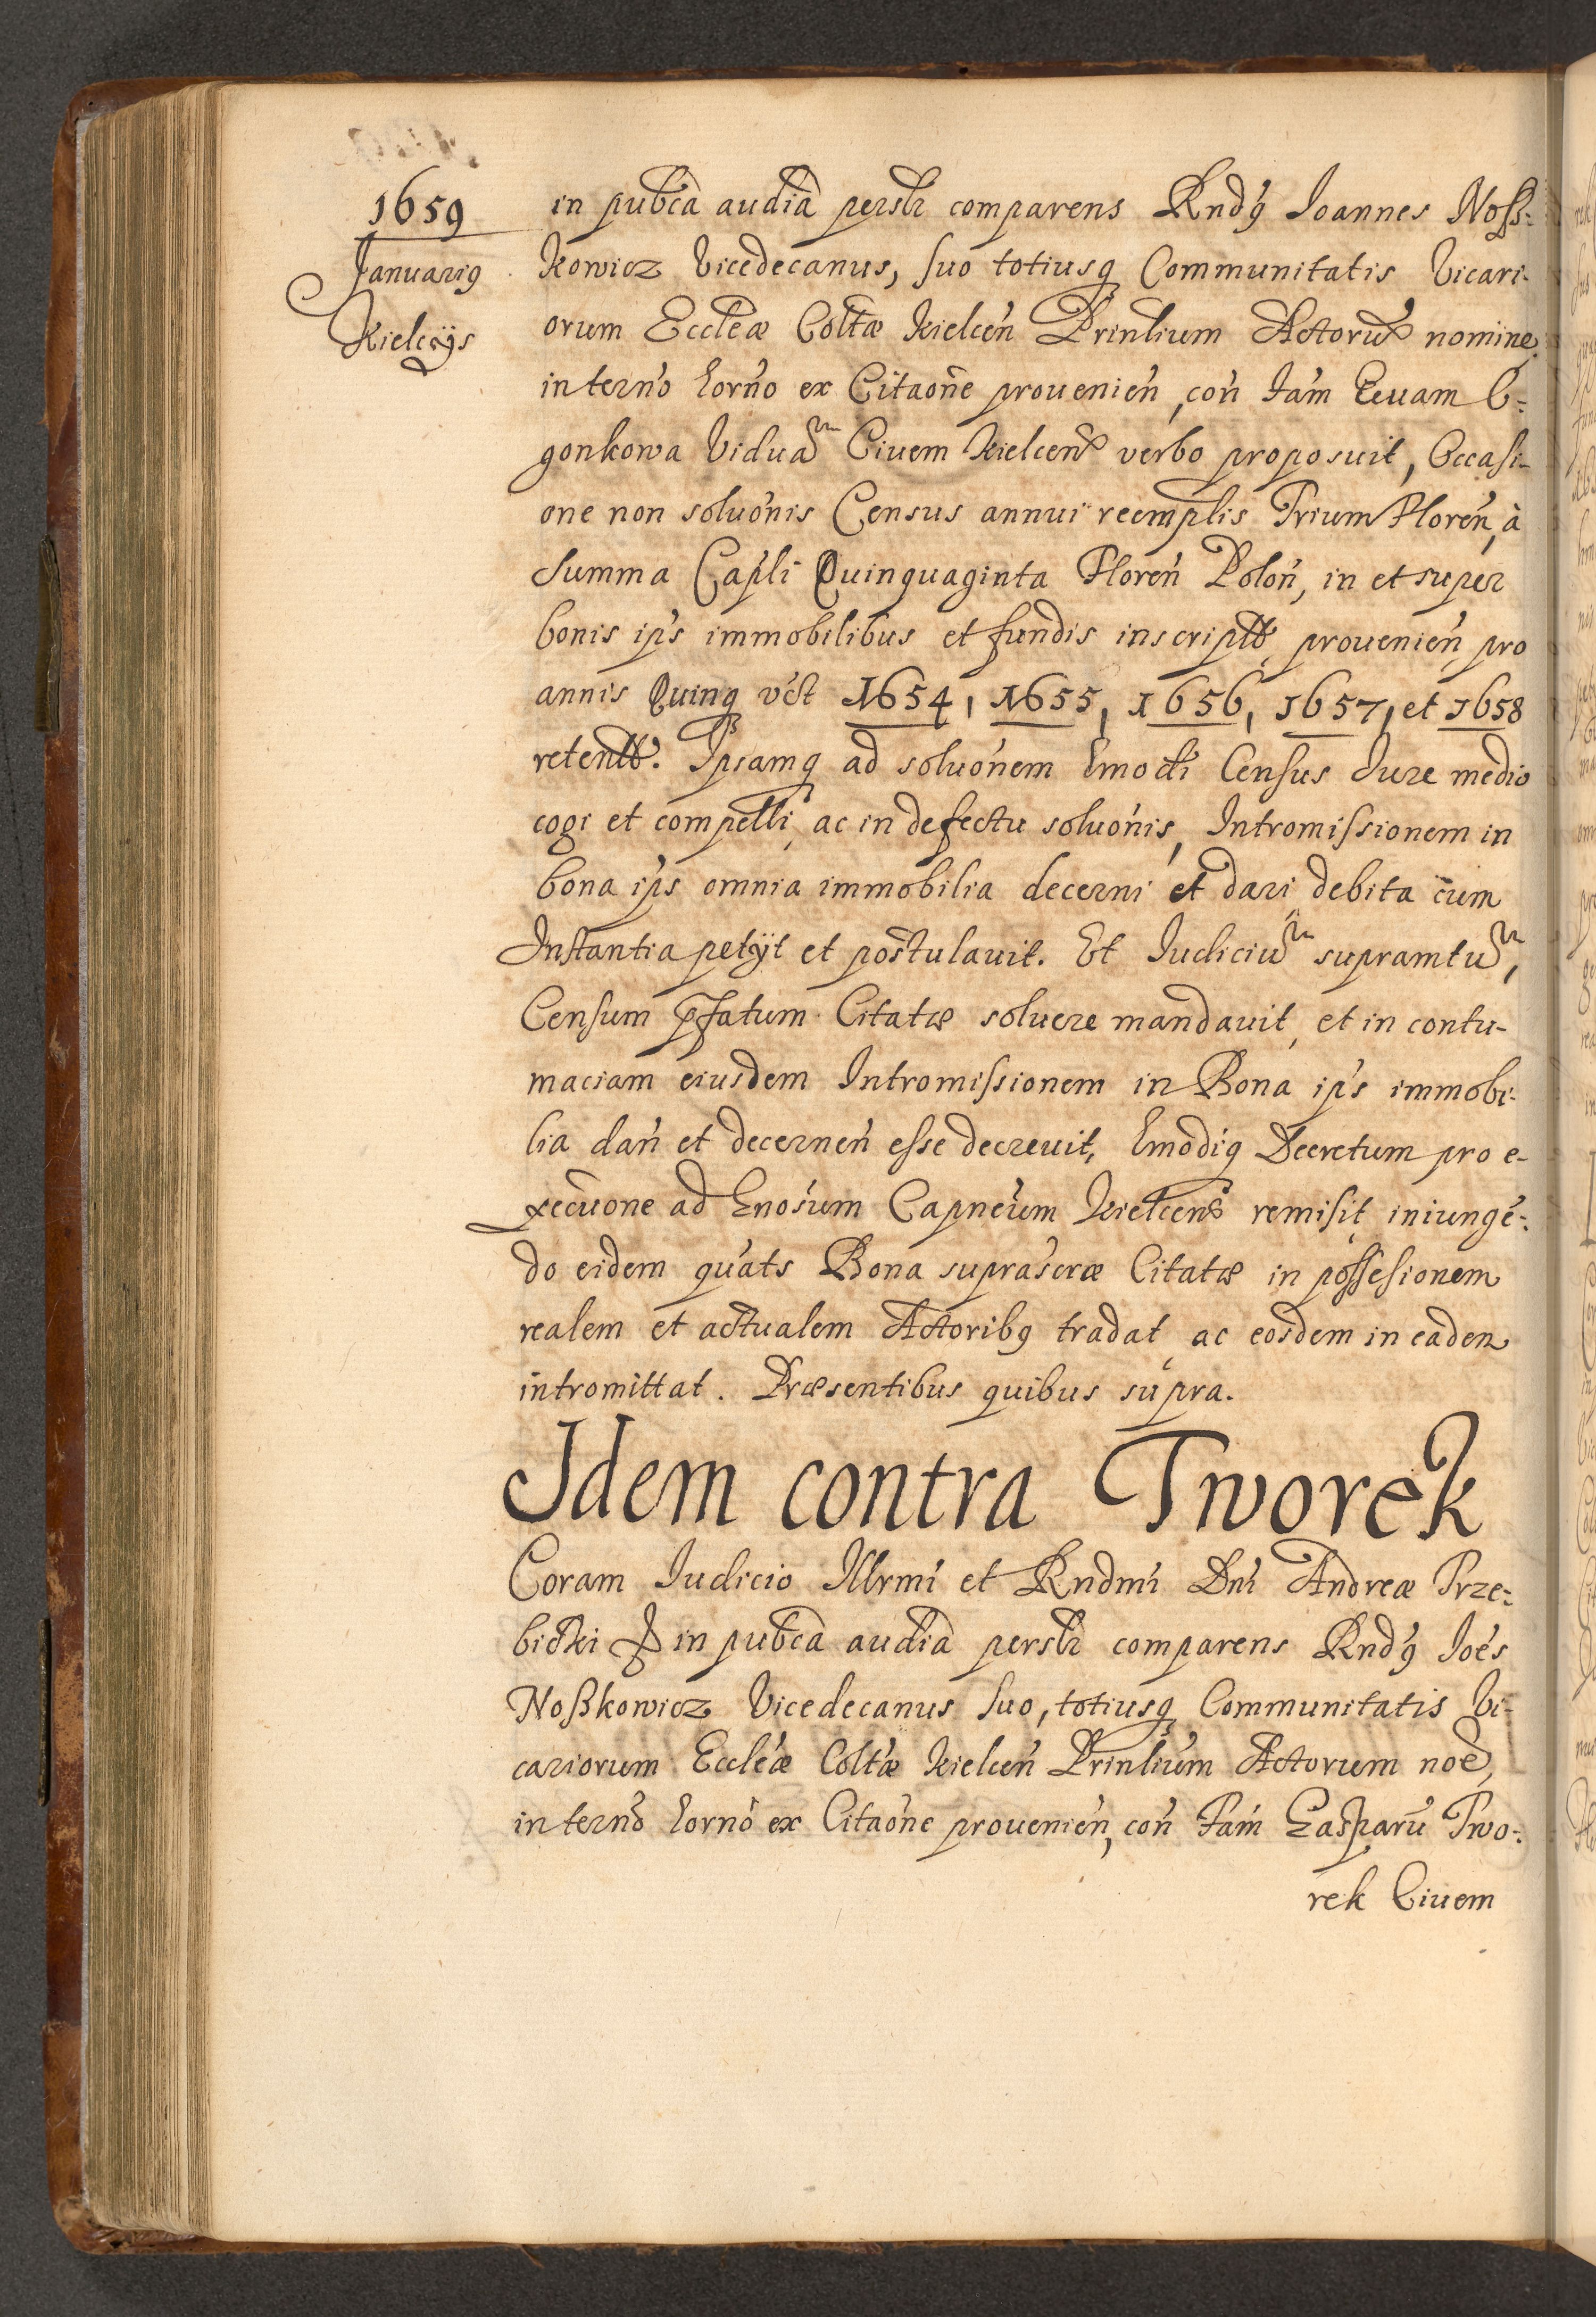 1659
Januarig
Kielcijs
in pubca audia perslr comparens Rndg Ioannes Nosz-
kowicz Vicedecanus, suo totiusq Communitatis Vicari-
orum Eccleæ Coltæ Kielcen Prinlium Actorum nomine
in terno horno ex Citaone prouenien, con Fam Euam O-
gonkowa Viduam Ciuem Kielcens verbo proposuit, Occasi-
one non soluonis Census annui reemplis Trium Floren, à
Summa Capli Quinquaginta Floren Polon, in et super
bonis ips immobilibus et fundis inscriptt prouenien pro
annis Quinq vct 1654, 1655, 1656, 1657, et 1658
retentt. Ipsamq ad soluonem hmodi Census Iure medio
cogi et compelli, ac in defectu soluonis, Intromissionem in
bona ips omnia immobilia decerni et dari debita cum
Instantia petijt et postulauit. Et Iudicium supramtum,
Censum pfatum Citatæ soluere mandauit, et in contu-
maciam eiusdem Intromissionem in Bona ips immobi-
lia dan et decernen esse decreuit, hmodiq Decretum pro e-
xecuone ad Gnosum Capneum Kielcens remisit iniunge-
do eidem quats Bona suprascræ Citatæ in possesionem
realem et actualem Actoribg tradat, ac eosdem in eadem
intromittat. Præsentibus quibus supra.
Idem contra Tworek
Coram Iudicio Illrmi et Rndmi Dni Andreæ Trze-
bicki & in pubca audia perslr comparens Rndg Ioes
Noszkowicz Vicedecanus suo, totiusq Communitatis Vi-
cariorum Eccleæ Coltæ Kielcen Prinlium Actorum noe,
in terno horno ex Citaone prouenien, con Fam Gasparu Two-
rek Ciuem